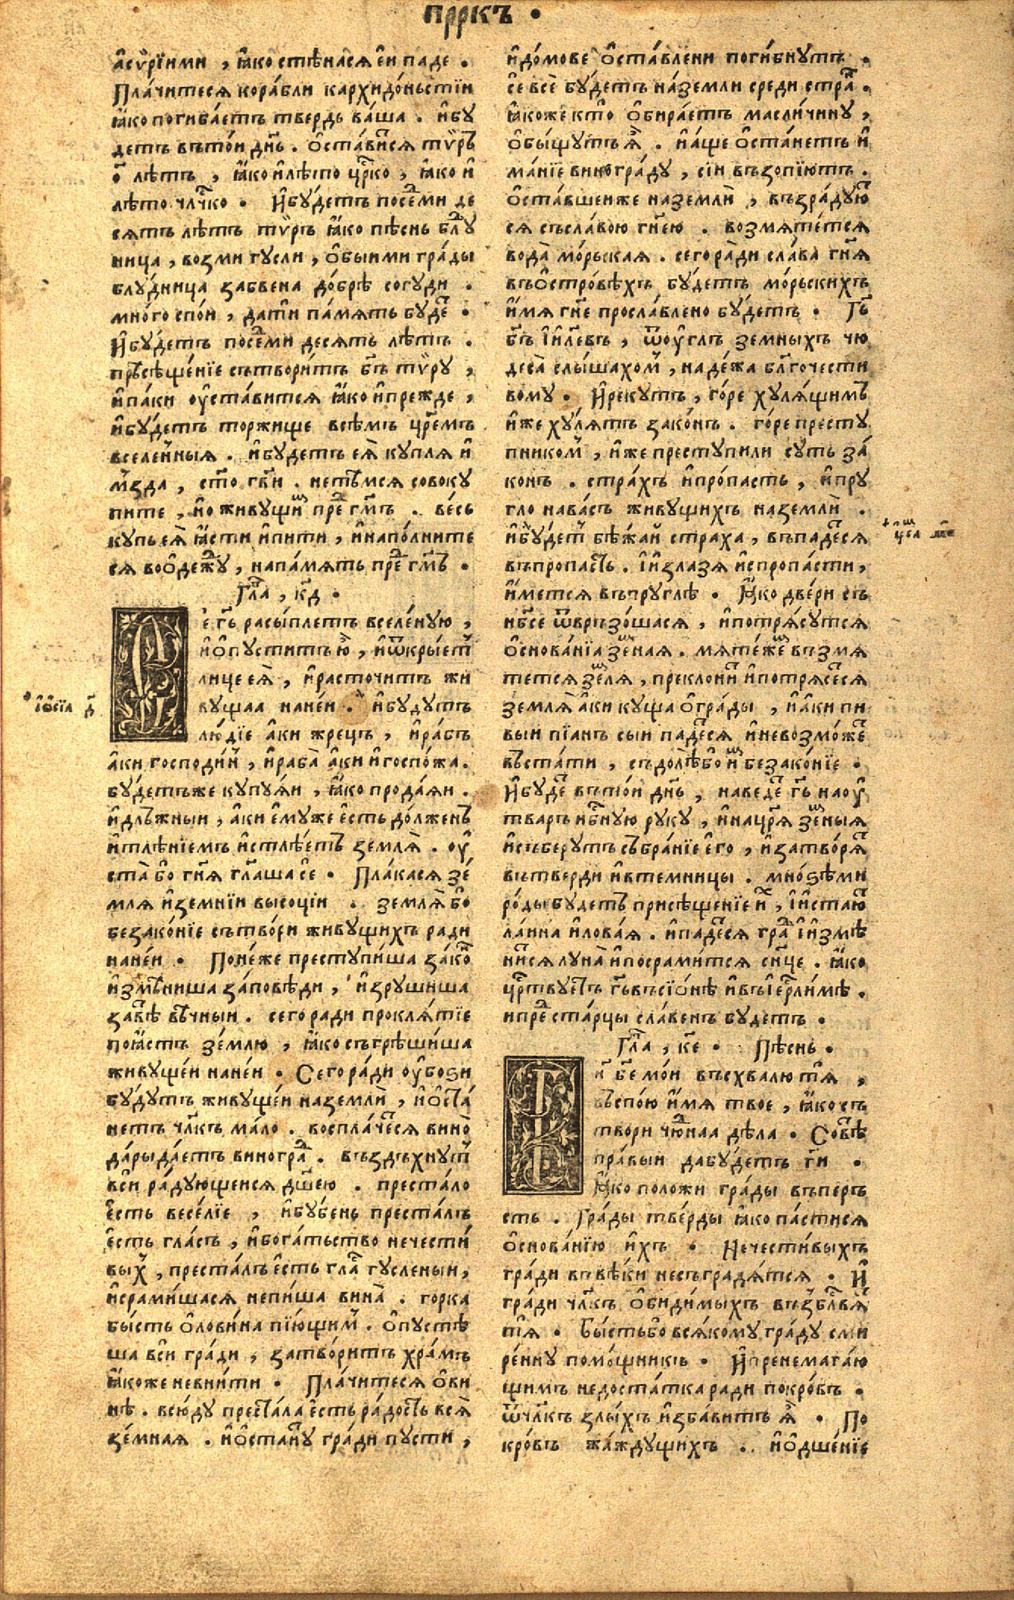 прⷪ҇ркъ •
а҆сѷрїими , ꙗ҆ко стѣна сѧ е҆и паде .
Пла́читесѧ кора́бли кархидо́ньстїи
ꙗ҆ко погиба́етъ твердь ва́ша . и҆бу
детъ въто́и дн҃ь . ѻ҆ста́висѧ тѵ́ръ
о҃ лѣтъ , ꙗ҆ко и҆лѣто цр҃ко , ꙗ҆ко и҆
лѣто чл҃чко • И҆бу́детъ посе́ми де
сѧтъ лѣтъ тѵ́ръ ꙗ҆ко пѣснь блꙋ
ница , возми гусли , ѻ҆быими гра́ды
блу́дница забвена до́брѣ согуди .
мно́го спои , дати па́мѧть бу́де •
И҆бу́детъ посе́ми десѧть лѣтъ .
присѣще́нїе сътвори́тъ бг҃ъ тѵ́ру ,
и҆па́ки оу҆ста́витсѧ ꙗ҆ко и҆пре́жде ,
и҆бу́детъ торжище всѣмъ цр҃емъ
вселе́нныѧ . и҆бу́детъ еѧ̀ куплѧ и҆
мъзда , ст҃о гв҃и . нетѣмсѧ совоку
пите , но живущи прⷣе гм҃ъ . ве́сь
купь еѧ̀ ꙗ҆сти и҆пити , и҆напо́лните
сѧ во ѻ҆де́жду , напа́мѧть прⷣе гм҃ъ •
Гла҃ , кд •
Се гь҃ расы́плетъ вселе́ную ,
и҆ѻ҆пусти́тъ ю҆ , и҆ѿкры́етъ
лице еѧ̀ , и҆расточи́тъ жи
вущаа нанеи . и҆бу́дутъ
лю́дїе а҆ки жрецъ , и҆ра́бъ
а҆ки господи́нъ , и҆раба̀ а҆ки и҆госпо́жа .
бу́детъже купуѧи , ꙗ҆ко прода́ѧи .
и҆длъжныи , а҆ки е҆му́же е҆сть до́лженъ
и҆тлѣнїемъ и҆стлѣ́етъ землѧ̀ . оу҆
ста̀ бо гн҃ѧ гл҃аша се • Пла́касѧ зе́
млѧ и҆земнїи высоцїи . землѧ̀ бо
безако́нїе сътвори живущихъ ра́ди
нанеи • Поне́же преступи́ша зако́
и҆змѣни́ша за́повѣди , и҆зруши́ша
завѣ вѣчныи . сего ра́ди проклѧ́тїе
поꙗ҆стъ зе́млю , ꙗ҆ко съгрѣши́ша
живуще́и нанеи • Сего ра́ди оу҆бозии
бу́дутъ живуще́и наземли̑ , и҆ѻ҆ста́
нетъ чл҃къ ма́ло . восплачесѧ вино̀
да́ры да́етъ виногра . въздъхнутъ
вси ра́дующеисѧ дш҃ею . преста́ло
е҆сть весе́лїе , и҆бу́бень преста́лъ
е҆сть гла́съ , и҆бога́тьство нечести́
выхъ , преста́лъ е҆сть гла гусленыи ,
и҆срами́шасѧ непи́ша вина̀ . горка
бы́сть ѻ҆лови́на пїющимъ . ѻ҆пустѣ
ша вси гра́ди , затвори́тъ хра́мъ
ꙗ҆коже невни́ти • Пла́читесѧ ѻ҆ви
нѣ . всю́ду преста́ла е҆сть ра́дость всѧ̀
зе́мнаѧ . и҆ѻ҆ста́ну гра́ди пусти ,
и҆до́мове ѻ҆ста́влени погибнутъ .
се всѐ бу́детъ на земли среди стра .
ꙗ҆коже кто̀ ѻ҆бира́етъ масличину ,
ѻ҆бы́щутъ ѧ҆̀ . и҆а́ще ѻ҆ста́нетъ и҆
ма́нїе виногра́ду , сїи възопїю́тъ .
ѻ҆ста́вшеиже на земли̑ , възра́дую
сѧ съсла́вою гн҃ею . возмѧте́тсѧ
вода̀ мо́рьскаѧ . сего ра́ди сла́ва гн҃ѧ
въѻ҆стро́вѣхъ бу́детъ мо́рьскихъ
и҆мѧ гн҃е просла́влено бу́детъ • Гь҃
бг҃ъ і҆и҃левъ , ѿоу҆глъ земныхъ чю
деса̀ слы́шахомъ , наде́жа бл҃гочести
вому • И҆реку́тъ , го́ре хулѧ́щимъ
и҆же хулѧ́тъ зако́нъ . го́ре престу
пникомъ , и҆же преступи́ли суть за
ко́нъ . стра́хъ и҆про́пасть , и҆пру
гло нава́съ живущихъ наземли̑ .
и҆бу́детъ бѣжа́й стра́ха , въпаде́сѧ
въпро́пасть . і҆и҆злазѧ и҆спро́пасти ,
и҆метсѧ въпруглѣ • Ꙗ҆ко две́ри съ
нб҃се ѿвръзо́шасѧ , и҆потрѧсу́тсѧ
ѻ҆снова́нїа земнаѧ . мѧте́же възмѧ
те́тсѧ землѧ̀ , преклони и҆потрѧсе́сѧ
землѧ̀ а҆ки куща ѻ҆гра́ды , и҆а҆ки пи
выи пїа́нъ сыи паде́сѧ и҆невозмо́же
въста́ти , съдолѣбо и҆ безако́нїе •
И҆бу́де въто́и дн҃ь , наведе гь҃ наоу҆
тварь нбⷭ҇ную руку , и҆нацр҃ѧ зе́мныѧ
и҆съберутъ събра́нїе е҆го , и҆затво́рѧ
въ тверди и҆втемницы . мно́зѣми
ро́ды бу́детъ присѣще́нїе и҆ , і҆и҆стаю
ла́ина и҆лова́ѧ . и҆паде́сѧ гра і҆и҆змѣ
ни́сѧ луна̀ и҆посрамитсѧ сн҃це . ꙗ҆ко
цр҃твуетъ гь҃ въсїѡ́нѣ и҆въ і҆ерⷭ҇лимѣ .
и҆прⷣе ста́рцы сла́венъ бу́детъ •
Гла҃ , ке • Пѣснь •
Гⷭ҇и бж҃е мои въсхвалю тѧ̀ ,
въспо́ю и҆мѧ твое , ꙗ҆ко съ
твори чю́днаа дѣла • Совѣ
пра́выи дабу́детъ гⷭ҇и •
Ꙗ҆ко положи гра́ды въперъ
сть . Гра́ды тве́рды ꙗ҆ко па́стисѧ
ѻ҆снова́нїю и҆хъ • Нечести́выхъ
гра́ди въвѣ́ки несъградѧ́тсѧ . И҆
гра́ди чл҃къ ѻ҆би́димыхъ възбл҃вѧ́
тїѧ • Бы́стьбо всѧ́кому гра́ду сми
ре́нну помо́щникъ • И҆пренемага́ю
щимъ недоста́тка ра́ди покро́въ .
ѿчл҃къ злы́хъ и҆зба́витъ ѧ҆̀ • По
кро́въ жа́ждущихъ . и҆ѻ҆дше́нїе